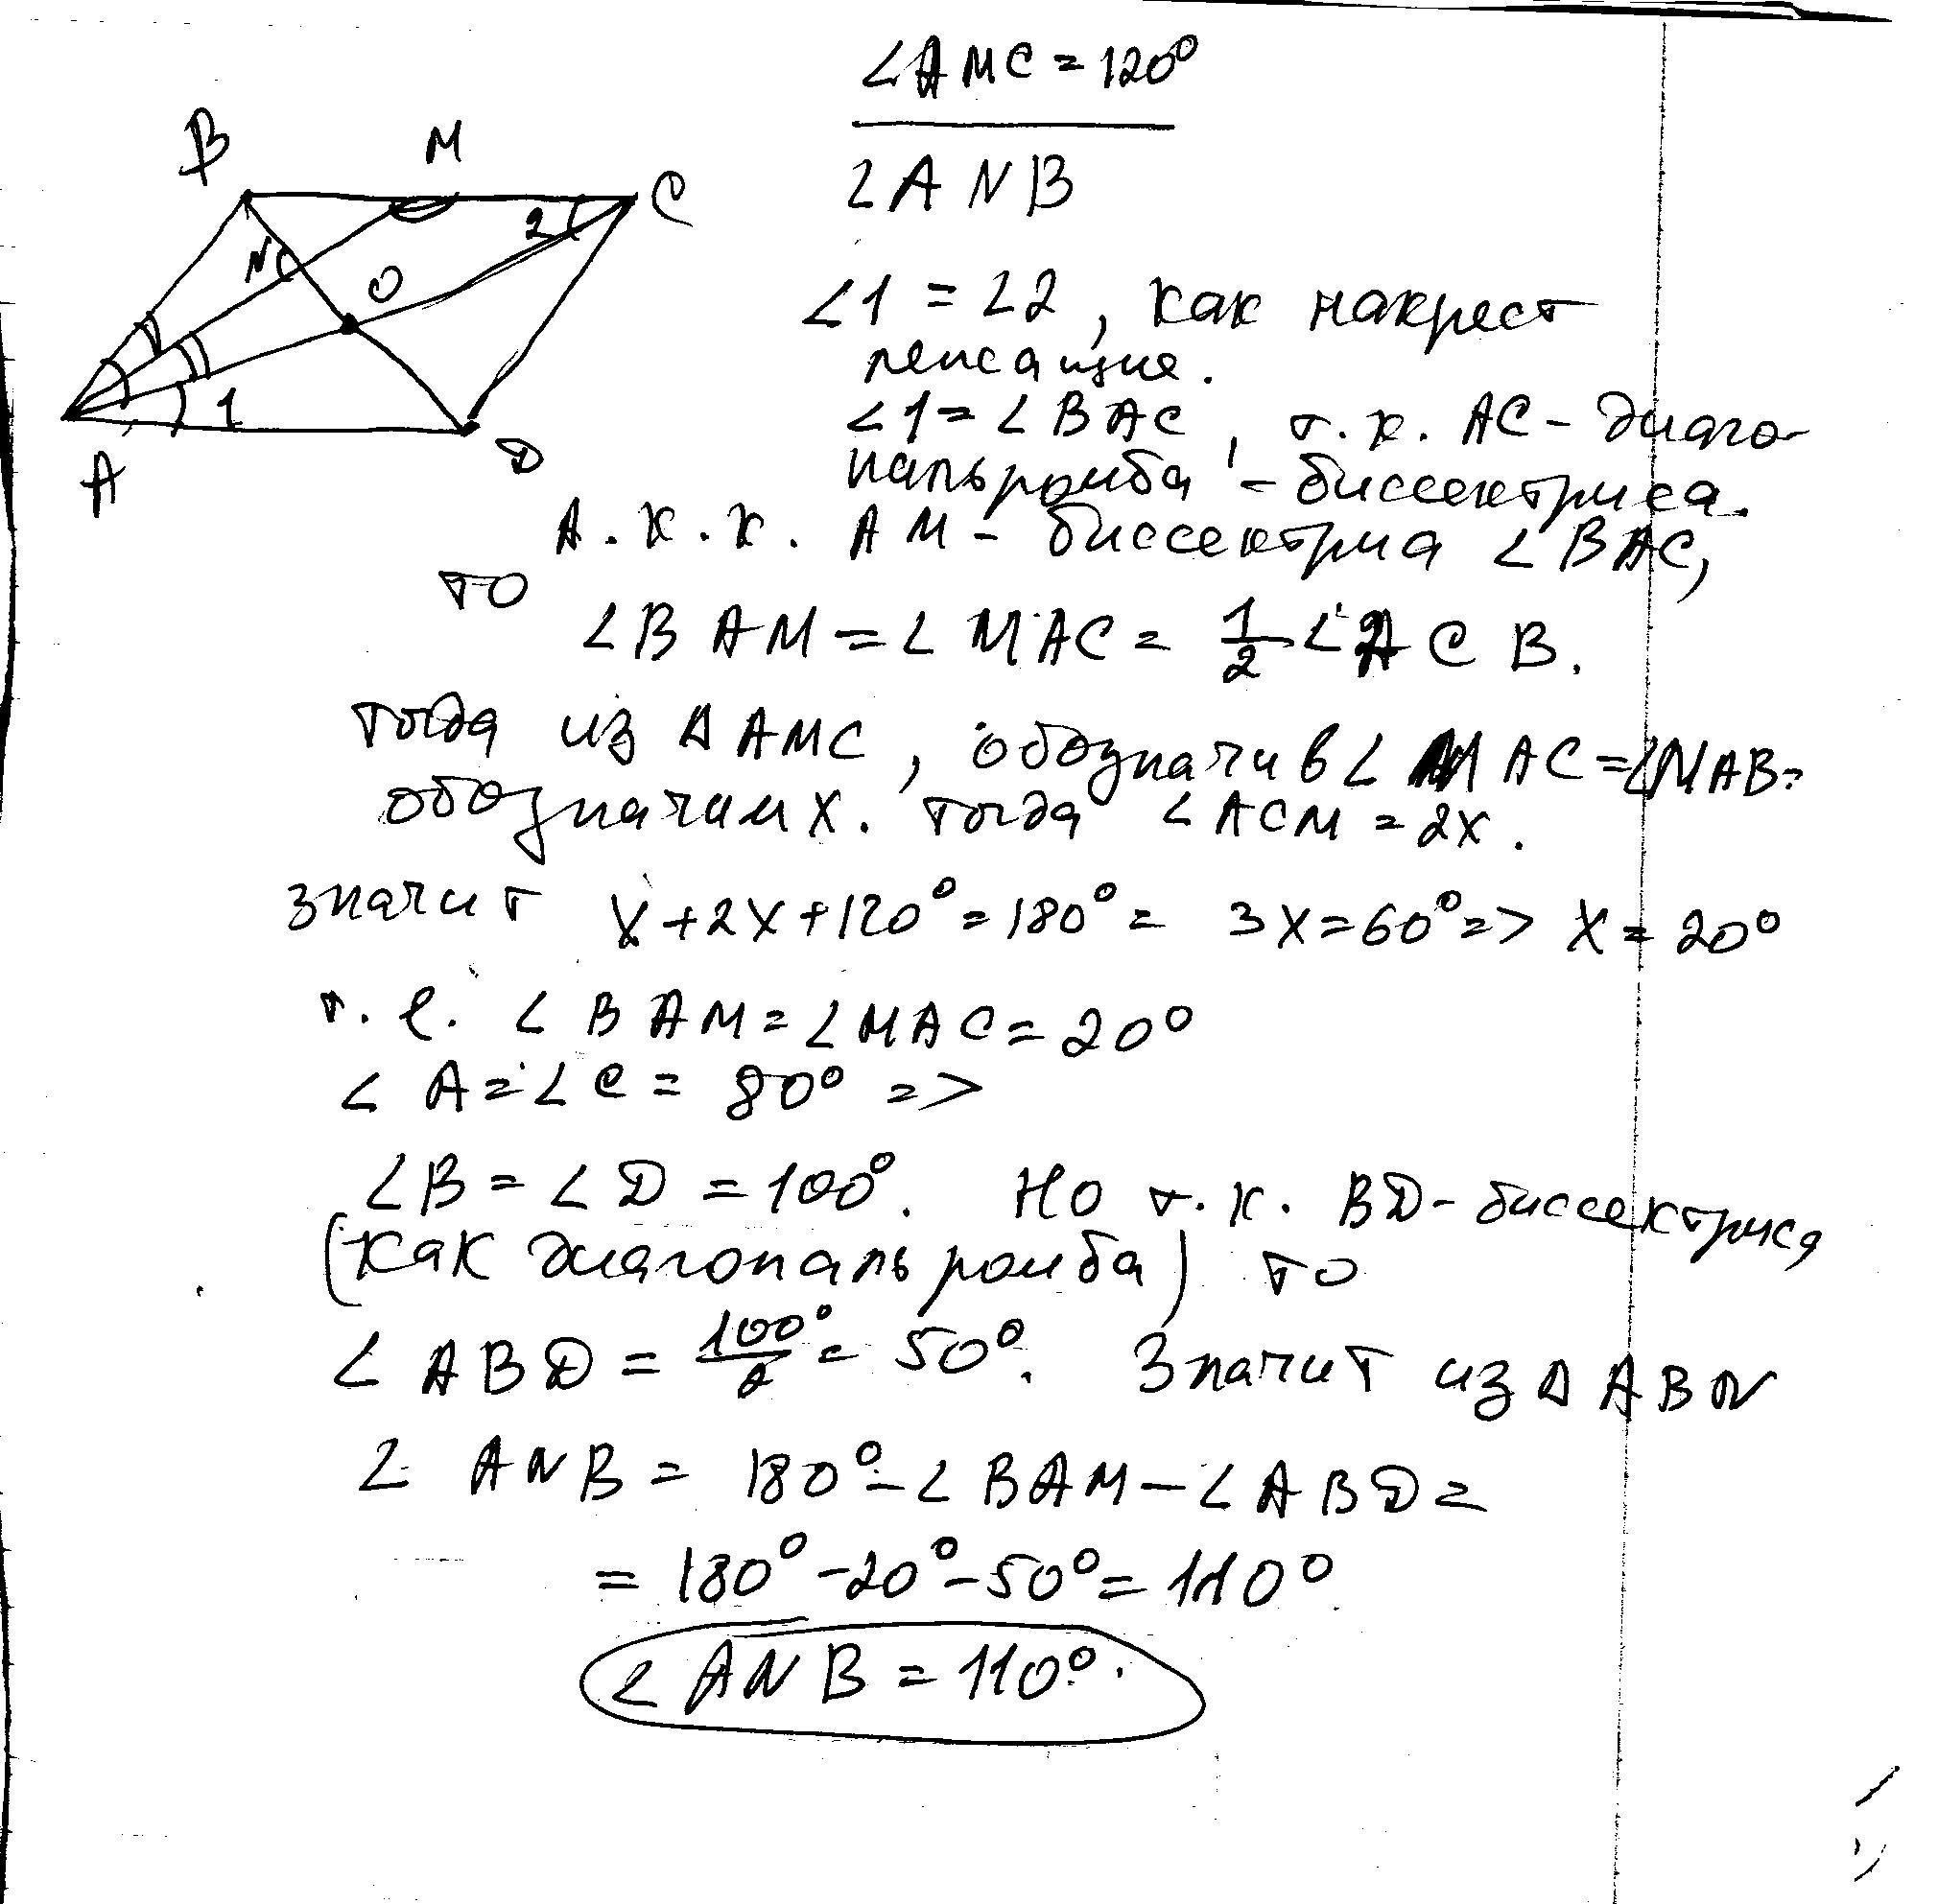 ∠AMC = 120°
∠ANB
B
M
C
2
N
O
1
A
D
∠1 = ∠2, как накрест
лежащие.
∠1 = ∠BAC, т.к. AC - диаго-
наль ромба - биссектриса.
А. к. к. AM - биссектриа ∠BAC,
то
∠BAM = ∠MAC = 1/2 ∠ACB.
тогда из ΔAMC, обозначив ∠MAC = ∠MAB =
обозначим x. тогда ∠ACM = 2x.
значит x + 2x + 120° = 180° = 3x = 60° => x = 20°
т.е. ∠BAM = ∠MAC = 20°
∠A = ∠C = 80° =>
∠B = ∠D = 100°. Но т.к. BD - биссектриса
(как диагональ ромба) то
∠ABD = 100°/2 = 50°. Значит из ΔABN
∠ANB = 180° - ∠BAM - ∠ABD =
= 180° - 20° - 50° = 110°
∠ANB = 110°.